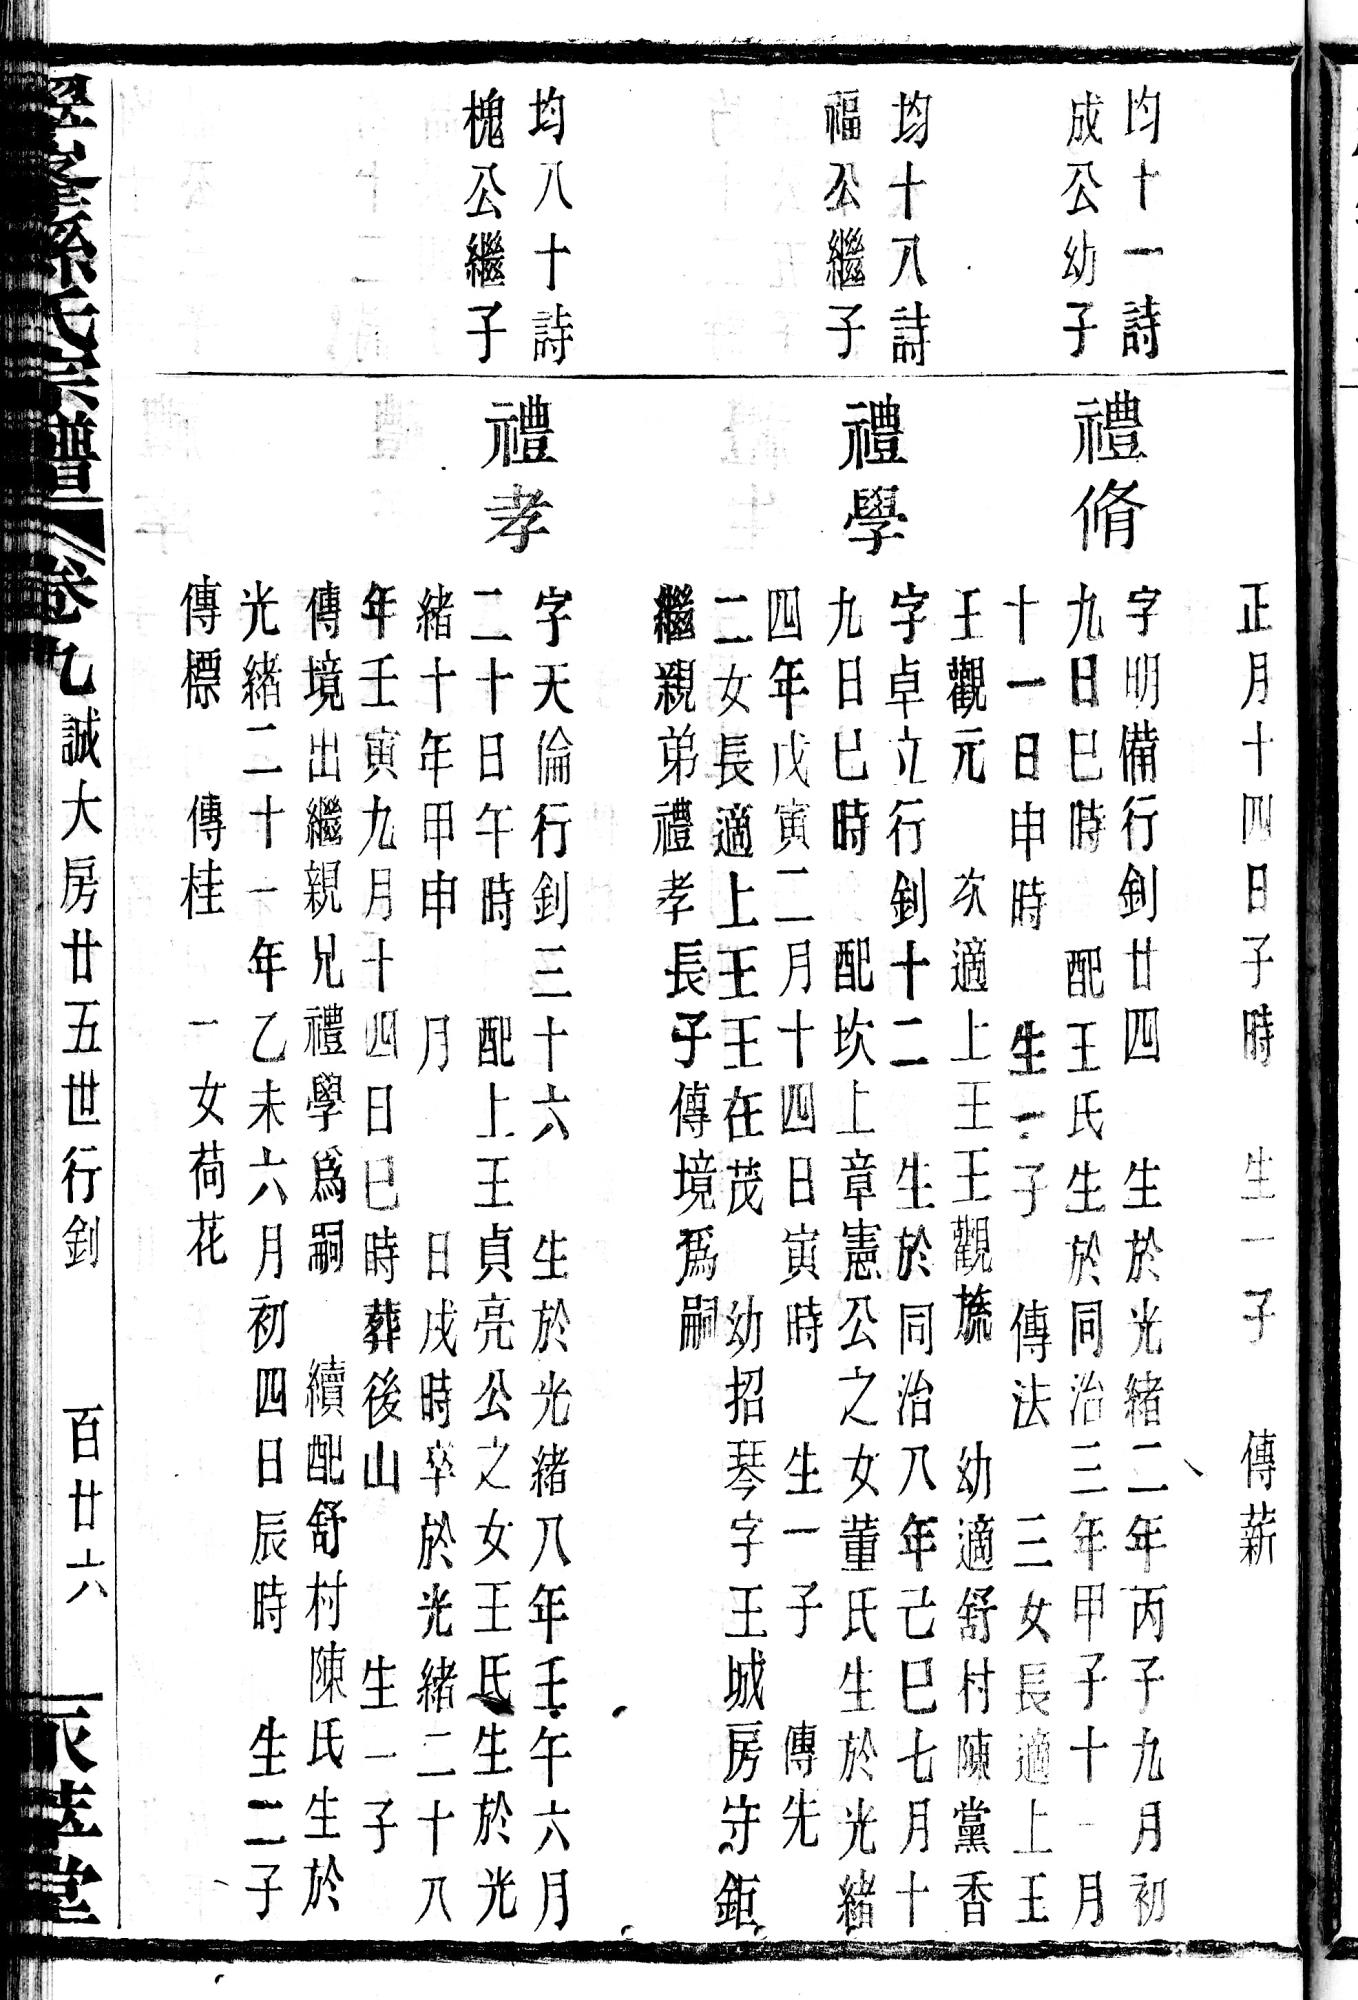 正月十四日子時　生一子　傳薪
均十一詩
成公幼子
禮脩
字明備行釗廿四　生於光緒二年丙子九月初
九日巳時　配王氏生於同治三年甲子十一月
十一日申時　生一子　傳法　三女長適上王
王觀元　次適上王王觀旒　幼適舒村陳黨香
均十八詩
福公繼子
禮學
字卓立行釗十二　生於同治八年己巳七月十
九日巳時　配坎上章憲公之女董氏生於光緒
四年戊寅二月十四日寅時　生一子　傳先
二女長適上王王在茂　幼招琴字王城房守鉅
繼親弟禮孝長子傳境爲嗣
均八十詩
槐公繼子
禮孝
字天倫行釗三十六　生於光緒八年壬午六月
二十日午時　配上王貞亮公之女王氏生於光
緒十年甲申　月　日戌時卒於光緒二十八
年壬寅九月十四日巳時葬後山　生一子
傳境出繼親兄禮學爲嗣　續配舒村陳氏生於
光緒二十一年乙未六月初四日辰時　生二子
傳標　傳桂　一女荷花
孫氏宗譜　卷九　誠大房廿五世行釗　百廿六　堂